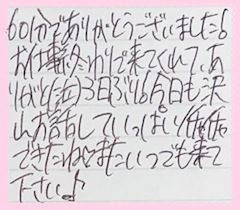 60分でありがとうございました!
お仕事終わりで来てくれて、あ
りがと(泣)3日ぶり!!今日も沢
山お話していっぱい
できたね♡またいつでも来て
下さい♪